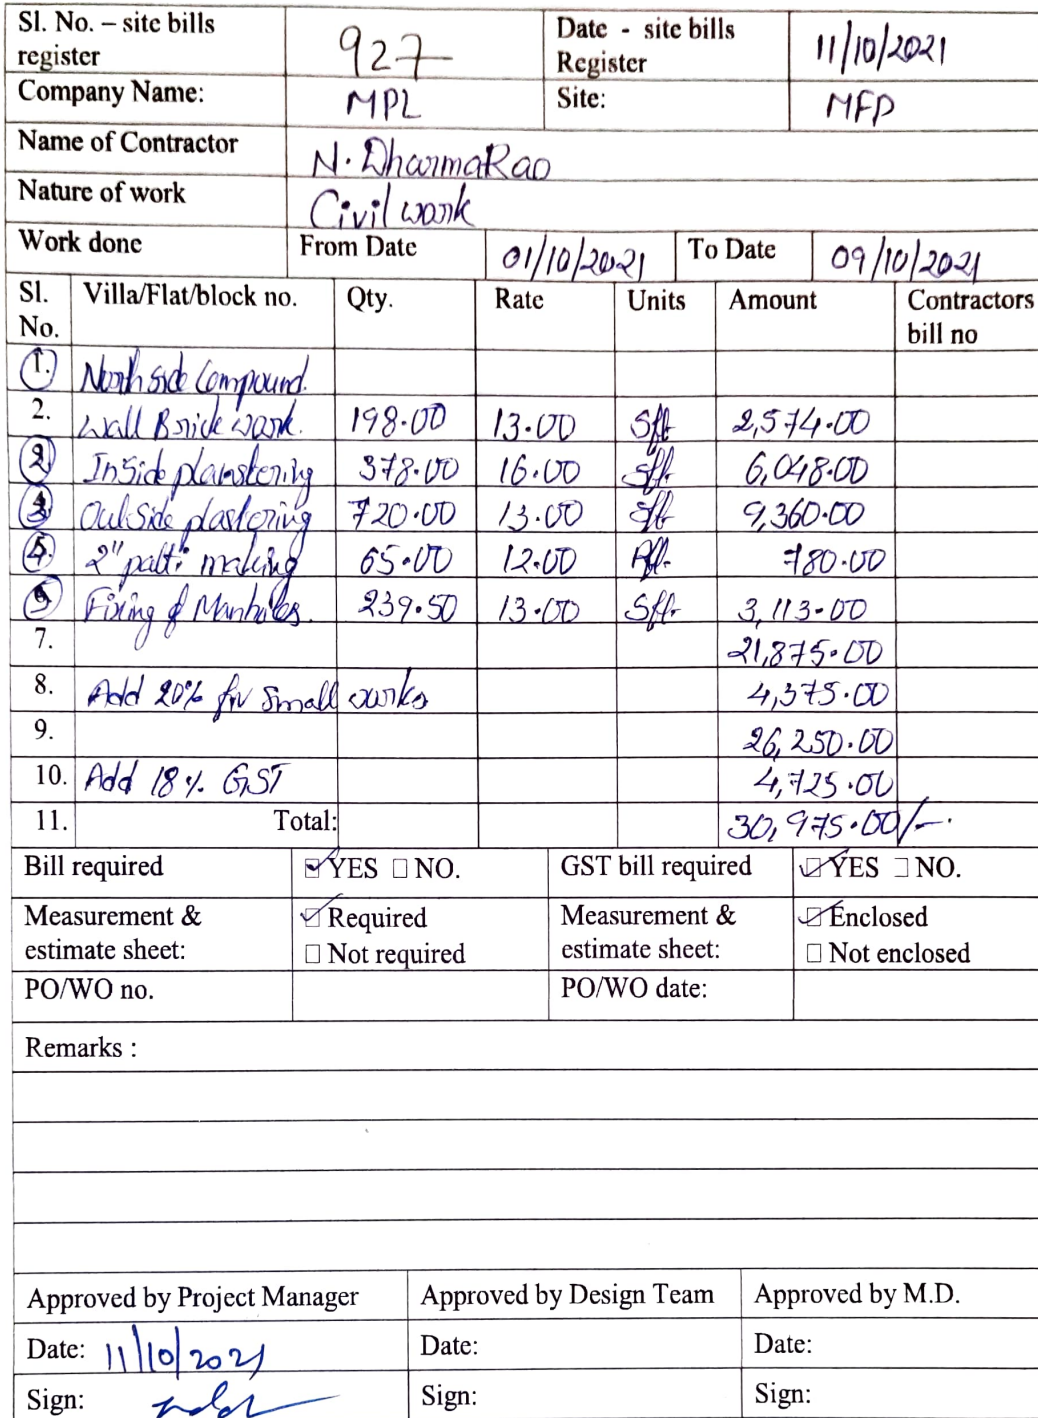 Sl. No. – site bills register 927 Date - site bills Register 11/10/2021
Company Name: MPL Site: MFP
Name of Contractor N. DharmaRao
Nature of work Civil work
Work done From Date 01/10/2021 To Date 09/10/2021
Sl. No. Villa/Flat/block no. Qty. Rate Units Amount Contractors bill no
1. North side Compound.
2. Wall Brick work. 198.00 13.00 Sft 2,574.00
2 Inside plarstering 378.00 16.00 Sft. 6,048.00
3 Outside plastering 720.00 13.00 Sft 9,360.00
4. 2" patti making 65.00 12.00 Rft. 780.00
5 Fixing of Manholes. 239.50 13.00 Sft. 3,113.00
7. 21,875.00
8. Add 20% for Small works 4,375.00
9. 26,250.00
10. Add 18% GST 4,725.00
11. Total: 30,975.00/-.
Bill required YES NO. GST bill required YES NO.
Measurement & estimate sheet: Required Not required Measurement & estimate sheet: Enclosed Not enclosed
PO/WO no. PO/WO date:
Remarks :
Approved by Project Manager Approved by Design Team Approved by M.D.
Date: 11/10/2021 Date: Date:
Sign: Sign: Sign: